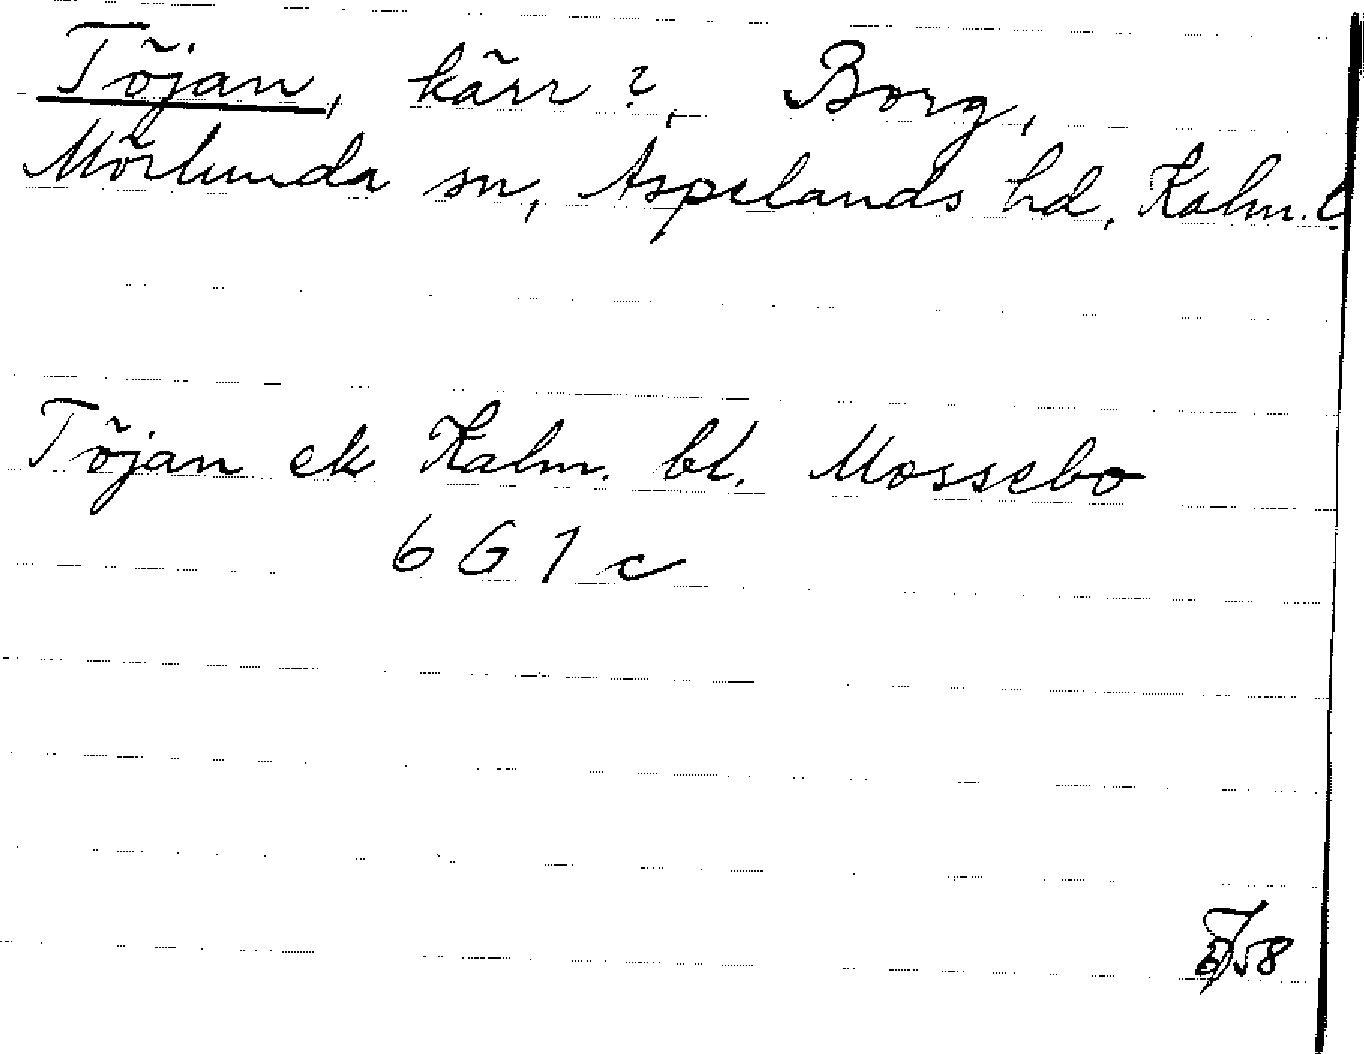 Töjan, kärr?, Borg,
Mörlunda sn, Aspelands hd, Kalm. l
Töjan ek Kalm. bl. Mossebo
6 G 1 c